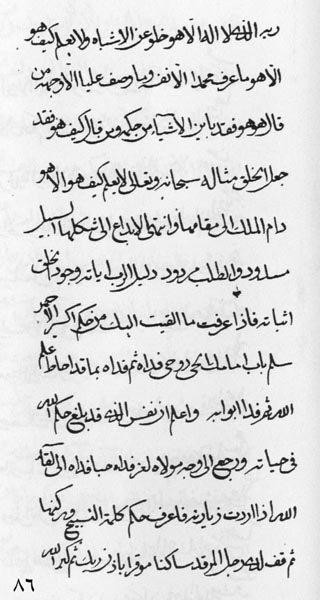 ربه الذي لا اله الا هو خلق عن الاشباه ولا يعلم كيف هو
الا هو ما عرف محمدا الا نفسه وما وصف عليا الا وجهه من
قال هو هو فقد باين الاشياء من حكمه ومن قال كيف هو فقد
جعل الخلق مثاله سبحانه وتعالى لا يعلم كيف هو الا هو
دام الملك الى مقامها وانتهى الابداع الى شكلها السبيل
مسدود والطلب مردود دليله اياته وجود الخلق
اثباته فاذا عرفت ما القيت اليك من حكم اكسير الاحمر
سلم باب امامك الحي روحي فداه ثم فداه بما قد احاط علم
الله ثم فدا ابوابه واعلم ان نفس الذي قد بلغ حكم الله
في حياته ورجع الى وجه مولاه لغز فداه حبا فداه الى لقاء
الله اذا اردت زيارته فاعرف حكم كلمة التسبيح وركنها
ثم قف لدى رجل المرقد ساكنا موقرا باذن ربك ثم كبر الله
٨٦